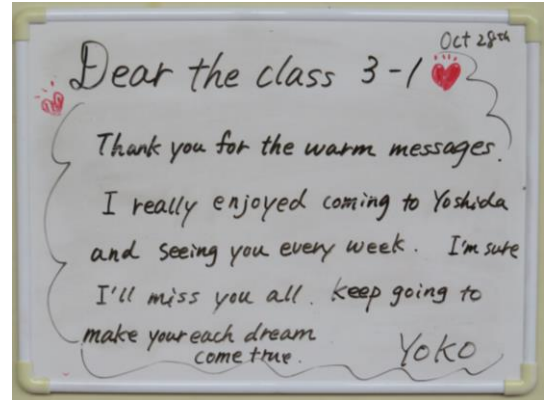 Oct 28th
Dear the class 3-1
Thank you for the warm messages.
I really enjoyed coming to Yoshida
and seeing you every week. I'm sure
I'll miss you all. keep going to
make your each dream
come true.
Yoko